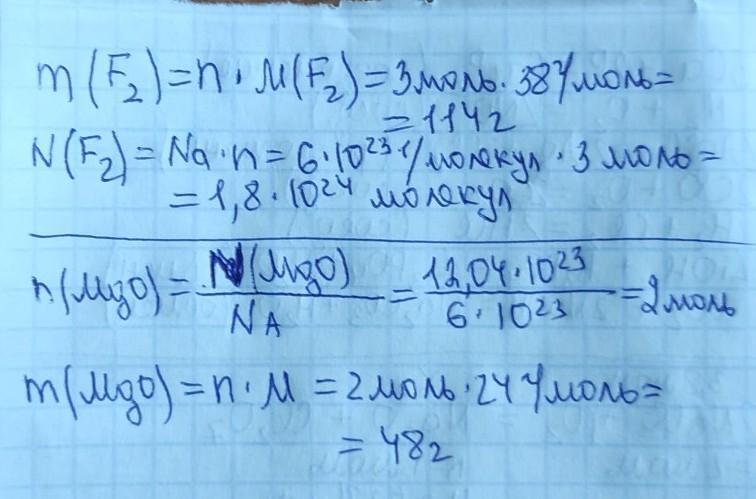 m(F₂)=n·M(F₂)=3моль·38г/моль=
=114г
N(F₂)=Na·n=6·10²³1/молекул·3 моль=
=1,8·10²⁴ молекул
n(MgO)=N(MgO)/NA=12,04·10²³/6·10²³=2моль
m(MgO)=n·M=2моль·24г/моль=
=48г